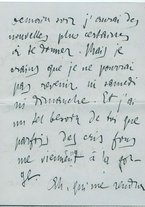 demain soir j'aurai des
nouvelles plus certaines
à te donner. Mais je
crains que je ne pourrai
pas revenir ni samedi
ni dimanche. Et j'ai
un tel besoin de toi que
parfois des cris fous
me viennent à la gor-
ge. Ah, qui me rendra